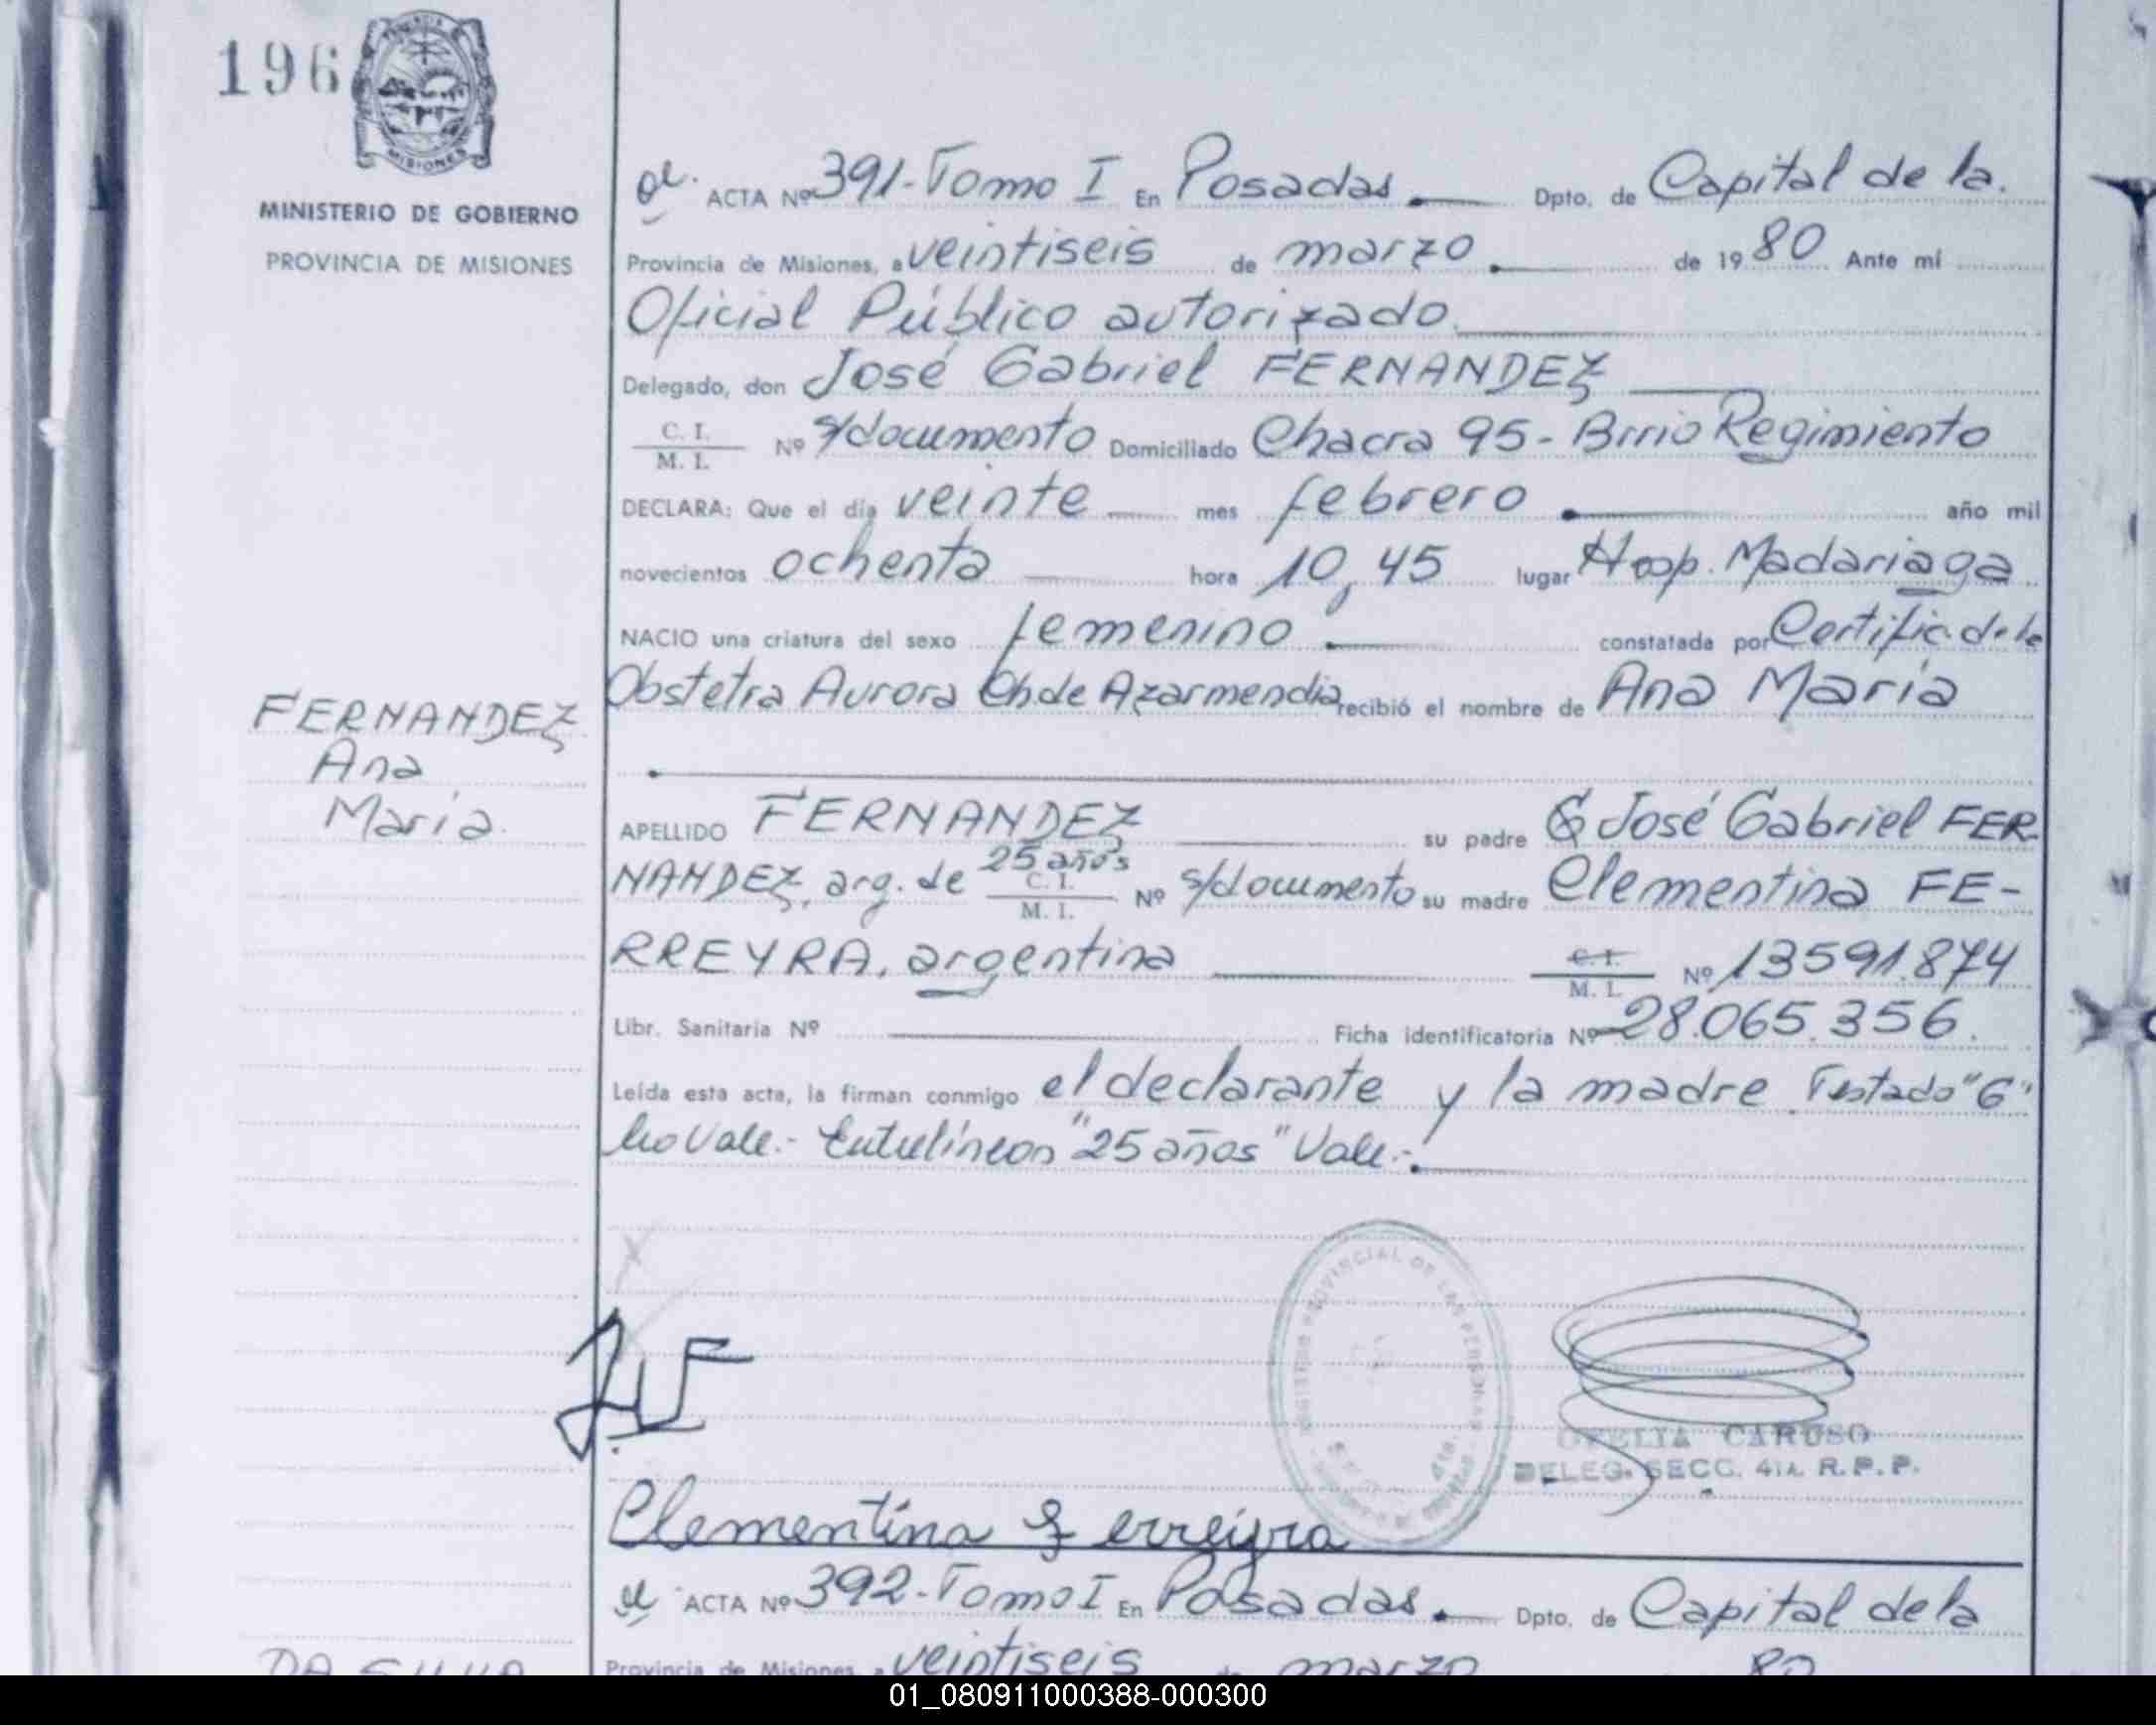 196
MISIONES
MINISTERIO DE GOBIERNO
PROVINCIA DE MISIONES
ACTA Nº 391-Tomo I En Posadas. Dpto. de Capital de la.
Provincia de Misiones, a veintiseis de marzo. de 1980 Ante mí
Oficial Público autorizado.
Delegado, don José Gabriel FERNANDEZ
C. I.
M. I. Nº s/documento Domiciliado Chacra 95- Brrio Regimiento
DECLARA: Que el día veinte mes febrero año mil
novecientos ochenta hora 10,45 lugar Hosp. Madariaga
NACIO una criatura del sexo femenino. constatada por Certific. de la
Obstetra Aurora Ch.de Azarmendia recibió el nombre de Ana María
FERNANDEZ
Ana
María.
APELLIDO FERNANDEZ su padre G José Gabriel FER
25 años
NANDEZ, arg. de C. I. M. I. Nº s/documento su madre Clementina FE-
RREYRA, argentina C. I. M. I. Nº 13591.874
Libr. Sanitaria Nº Ficha identificatoria Nº 28.065.356.
Leída esta acta, la firman conmigo el declarante y la madre. Testado "G"
No Vale.- Entrelíneas "25 años" Vale.-
REGISTRO PROVINCIAL DE LAS PERSONAS
OFELIA CARUSO
DELEG. SECC. 4ta. R. P. P.
Clementina Ferreyra
ACTA Nº 392-Tomo I En Posadas. Dpto. de Capital de la
DA SILVA
Provincia de Misiones, a veintiseis de marzo 80
01_080911000388-000300